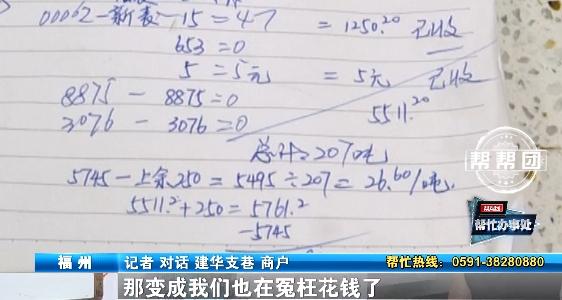 00062-新表-15=47 =1250.20 已收
653=0
5=5元 =5元 已收
8875-8875=0
5511.20
3076-3076=0
总计=207吨
帮帮团
5745-上余250=5495÷207=26.60/吨.
5511.2+250=5761.2
-5745
帮忙办事处
福州 记者 对话 建华支巷 商户 帮忙热线：0591-38280880
那变成我们也在冤枉花钱了